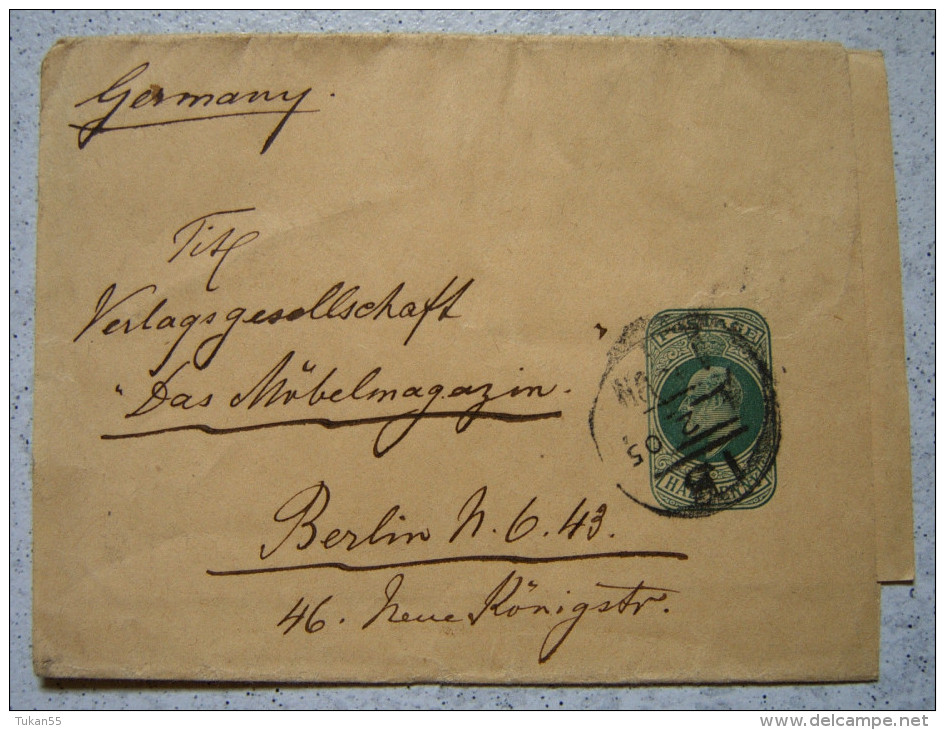 Germany.
Titl
Verlagsgesellschaft
"Das Möbelmagazin.
Berlin N. O. 43.
46. Neue Königstr.
POSTAGE
05
Tukan55
www.delcampe.net